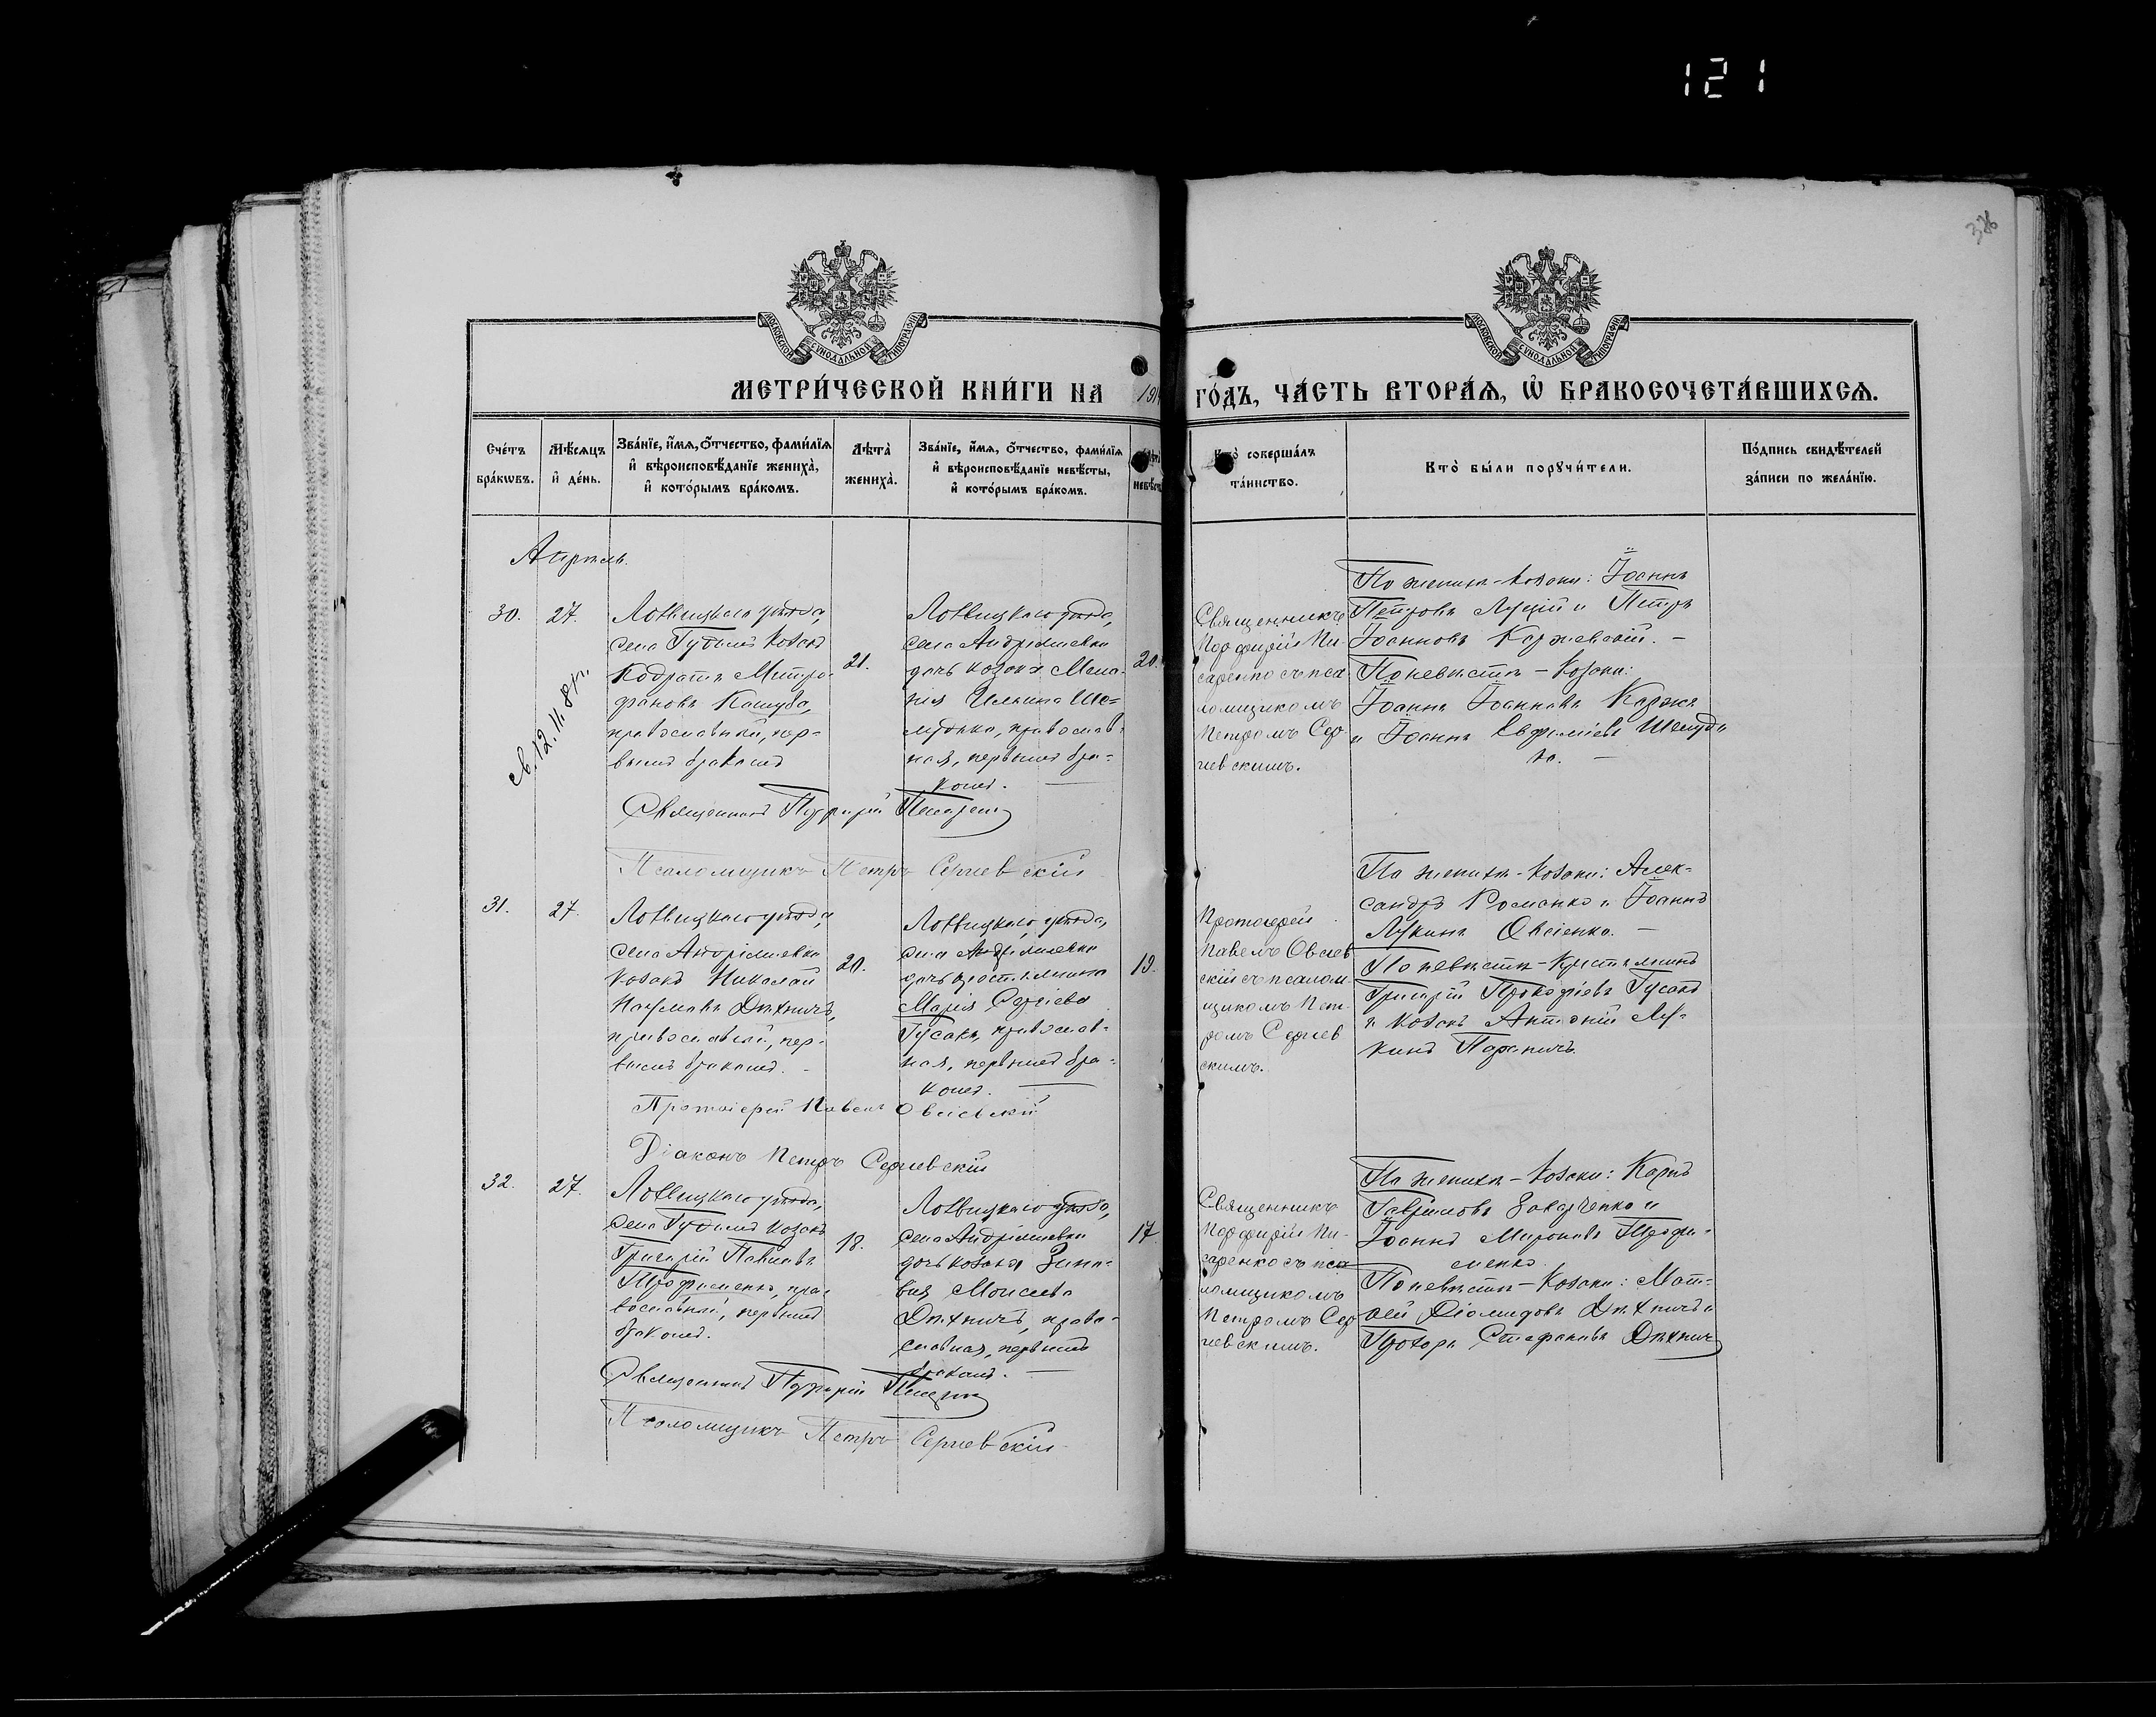 121
386
МОСКОВСКОЙ СѴНОДАЛЬНОЙ ТИПОГРАФІИ
МОСКОВСКОЙ СѴНОДАЛЬНОЙ ТИПОГРАФІИ
МЕТРИ́ЧЕСКОЙ КНИ́ГИ НА 191 ГО́ДЪ, ЧА́СТЬ ВТОРА́Я, Ѡ҆ БРАКОСОЧЕТА́ВШИХСЯ.
Сче́тъ
бра́кѡвъ.
Мѣ́сяцъ
и҆ де́нь.
Зва́нїе, и҆́мя, о҆́тчество, фами́лїя
и҆ вѣроисповѣ́данїе жениха̀,
и҆ кото́рымъ бра́комъ.
Лѣ́та
жениха̀.
Зва́нїе, и҆́мя, о҆́тчество, фами́лїя
и҆ вѣроисповѣ́данїе невѣ́сты,
и҆ кото́рымъ бра́комъ.
Лѣ́та
невѣ́сты
Кто̀ соверша́лъ
та́инство.
Кто̀ бы́ли порꙋчи́тели.
По́дпись свидѣ́телей
за́писи по жела́нїю.
Апрѣль.
30.
27.
св. 12. II. 8 г.
Лохвицкаго уѣзда,
села Гудимъ козакъ
Кодратъ Митро-
фановъ Кашуба,
православный, пер-
вымъ бракомъ
21.
Лохвицкаго уѣзда,
села Андріяшевки
дочь козака Мела-
нія Ильина Ше-
мудько, православ-
ная, первымъ бра-
комъ. —
20.
Священникъ
Порфирій Пи-
саренко съ пса-
ломщикомъ
Петромъ Сер-
гіевскимъ.
По женихѣ - козаки: Іоаннъ
Петровъ Луцій и Петръ
Іоанновъ Каржевскій. —
По невѣстѣ - козаки:
Іоаннъ Іоанновъ Каржъ
и Іоаннъ Евфиміевъ Шемудь
ко. —
Священникъ Порфирій Писаренко
Псаломщикъ Петръ Сергіевскій
31.
27.
Лохвицкаго уѣзда,
села Андріяшевки
козакъ Николай
Наумовъ Дѣхтичъ,
православный, пер-
вымъ бракомъ. -
20.
Лохвицкаго, уѣзда,
села Андріяшевки
дочь крестьянина
Марія Сергіева
Гусакъ, православ-
ная, первымъ бра-
комъ. —
19.
Протоіерей
Павелъ Овсіев
скій съ псалом-
щикомъ Пет-
ромъ Сергіев
скимъ.
По женихѣ - козаки: Алек-
сандръ Романко и Іоаннъ
Лукинъ Овсіенко. —
По невѣстѣ - крестьянинъ
Григорій Прокофіевъ Гусакъ
и козакъ Антоній Лу-
кинъ Параничъ.
Протоіерей Павелъ Овсіевскій
Діаконъ Петръ Сергіевскій
32.
27.
Лохвицкаго уѣзда,
села Гудимъ козакъ
Григорій Павловъ
Трофименко, пра-
вославный, первымъ
бракомъ.
18.
Лохвицкаго уѣзда,
села Андріяшевки
дочь козака Зино-
вія Моисеева
Дѣхтичъ, право-
славная, первымъ
бракомъ. —
17
Священникъ
Порфирій Пи-
саренко съ пса
ломщикомъ
Петромъ Сер
гіевскимъ.
По женихѣ - козаки: Карпъ
Гавріиловъ Захарченко и
Іоаннъ Мироновъ Трофи-
менко.
По невѣстѣ - козаки: Мат-
ѳей Діомидовъ Дѣхтичъ и
Прохоръ Стефановъ Дѣхтичъ
Священникъ Порфирій Писаренко
Псаломщикъ Петръ Сергіевскій